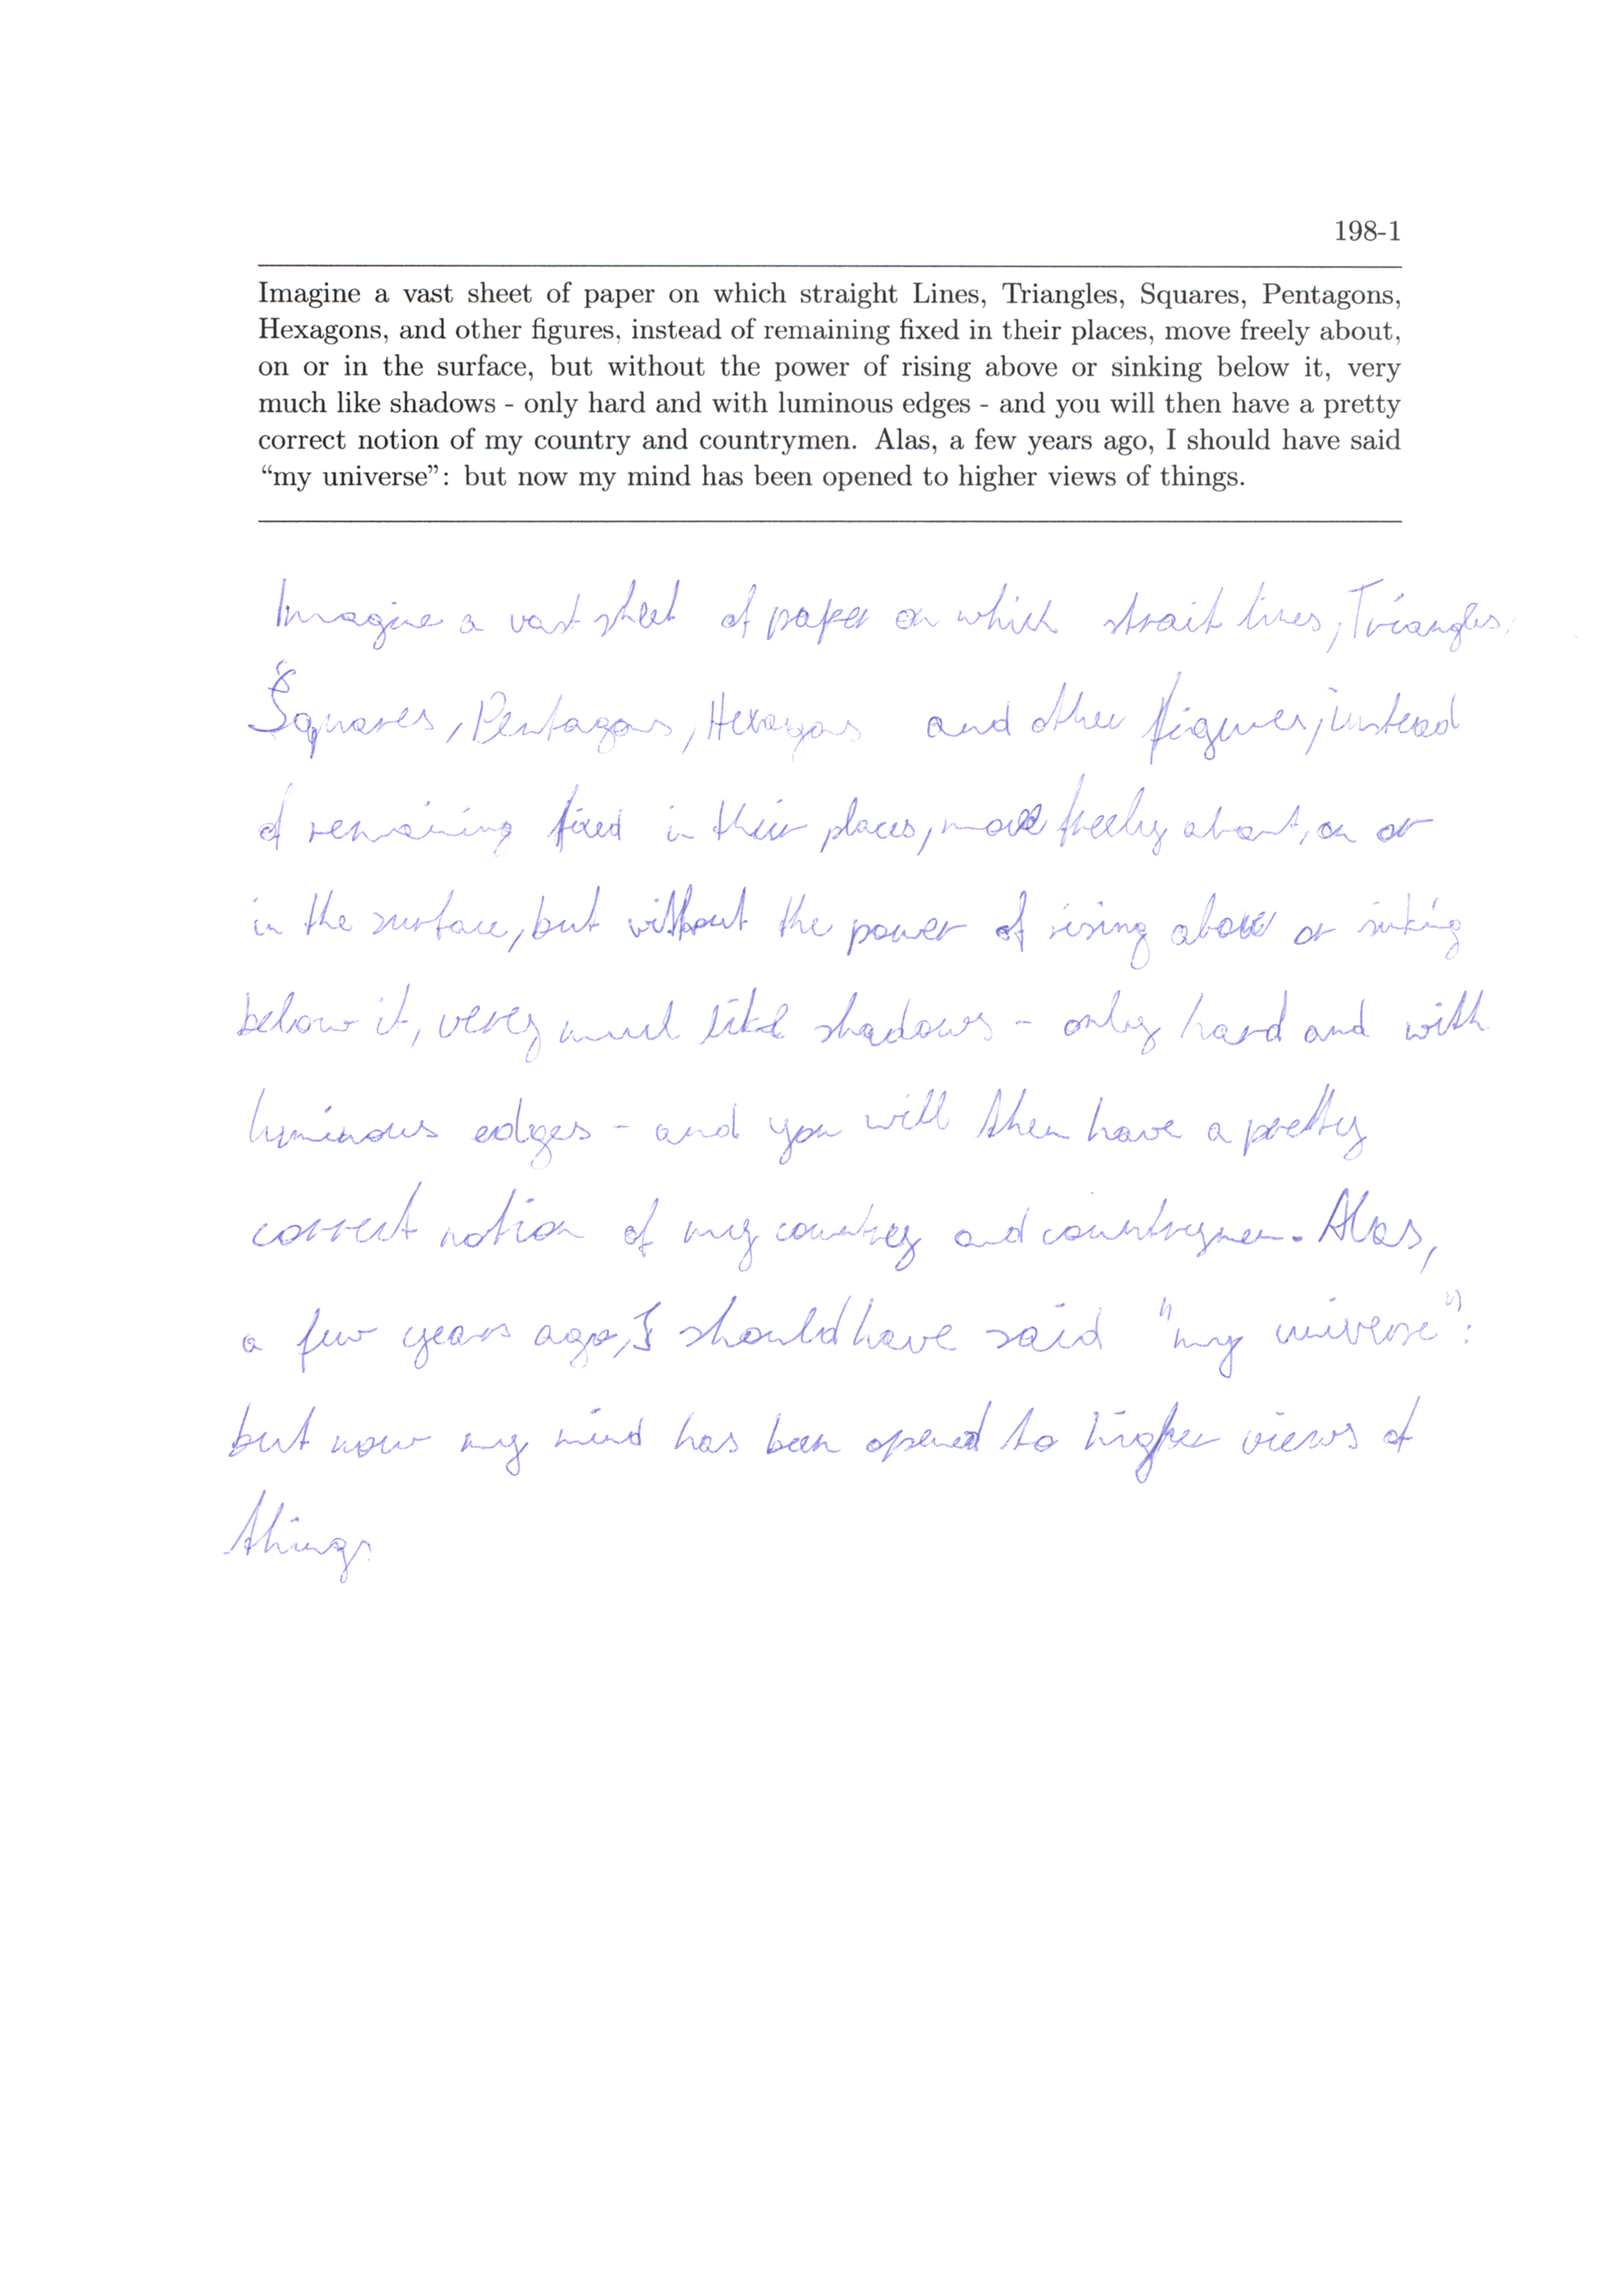 198-1
Imagine a vast sheet of paper on which straight Lines, Triangles, Squares, Pentagons,
Hexagons, and other figures, instead of remaining fixed in their places, move freely about,
on or in the surface, but without the power of rising above or sinking below it, very
much like shadows - only hard and with luminous edges - and you will then have a pretty
correct notion of my country and countrymen. Alas, a few years ago, I should have said
“my universe”: but now my mind has been opened to higher views of things.
Imagine a vast sheet of paper on which strait lines, Triangles,
Squares, Pentagons, Hexagons and other figures, instead
of remaining fixed in their places, move freely about, on or
in the surface, but without the power of rising above or sinking
below it, very much like shadows - only hard and with
luminous edges - and you will then have a pretty
correct notion of my country and countrymen. Alas,
a few years ago, I should have said "my universe":
but now my mind has been opened to higher views of
things